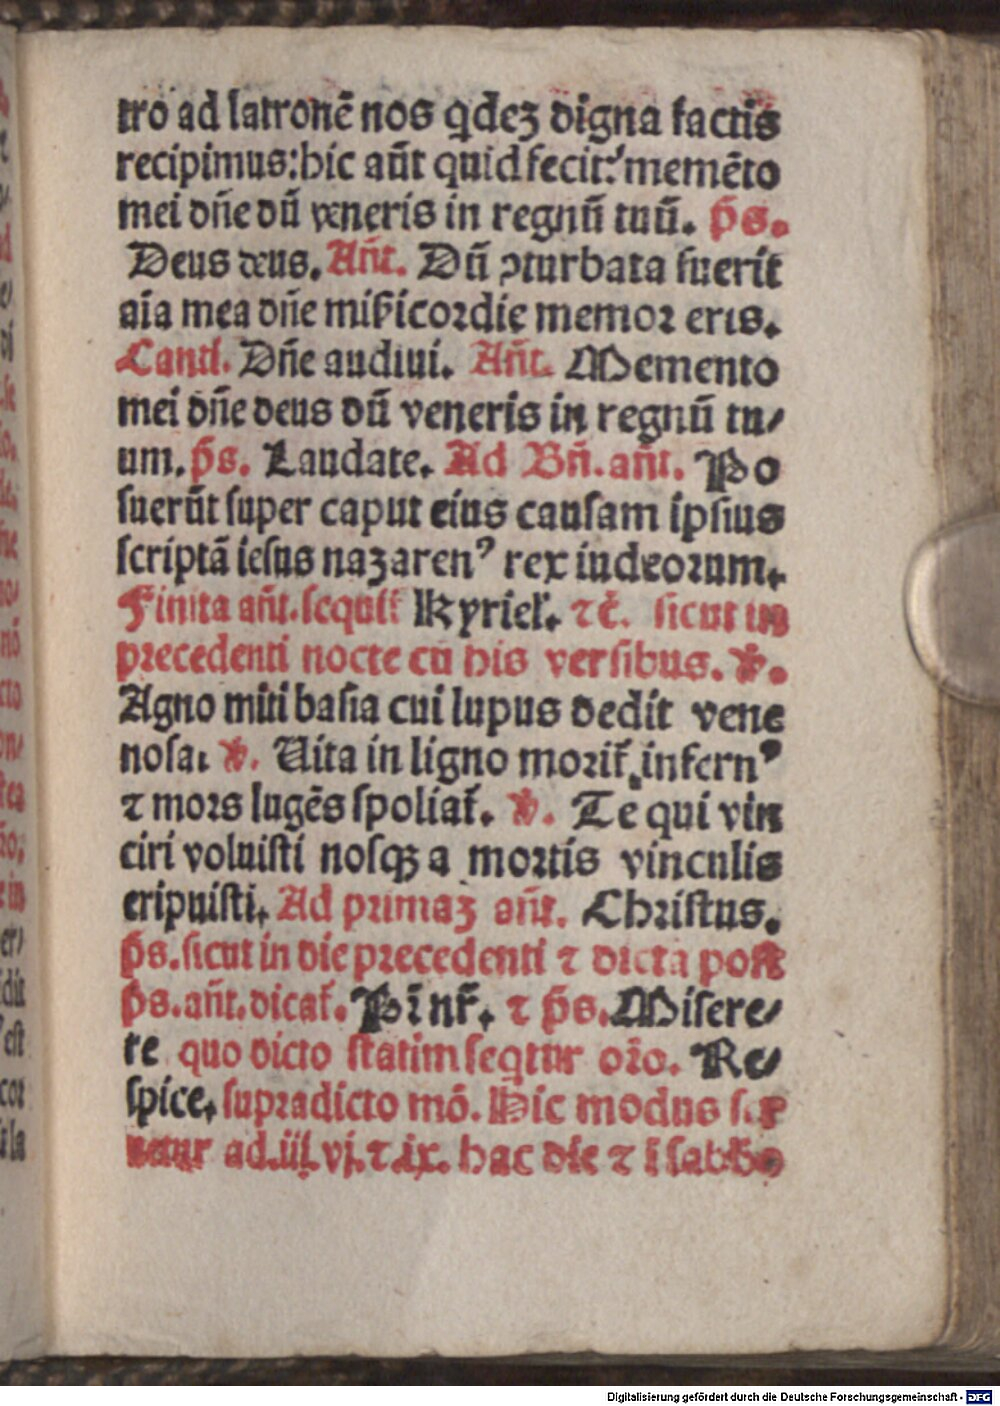 tro ad latronē nos qdeʒ digna factis
recipimus: hic aūt quid fecit: memēto
mei dn̄e dū veneris in regnū tuū. p̄s.
Deus deus. Ān̄t. Dū ꝯturbata fuerit
aīa mea dn̄e mīsericordie memor eris.
Cantl. Dn̄e audiui. Ān̄t. Memento
mei dn̄e deus dū veneris in regnū tu⸗
um. p̄s. Laudate. Ad Bn̄. an̄t. Po
suerūt super caput eius causam ipsius
scriptā iesus nazarenꝰ rex iudeorum.
Finita an̄t. sequit᷑ Kyriel᷑. ⁊ c̄. sicut in
precedenti nocte cū his versibus. ℣.
Agno miti basia cui lupus dedit vene
nosa: ℣. Uita in ligno morit᷑ infernꝰ
⁊ mors lugēs spoliat᷑. ℣. Te qui vin
ciri voluisti nosqꝫ a mortis vinculis
eripuisti. Ad primaʒ an̄t. Christus.
p̄s. sicut in die precedenti ⁊ dicta post
p̄s. an̄t. dicat᷑. Pr̄ nr̄. ⁊ p̄s. Misere⸗
re quo dicto statim seqtur orō. Re⸗
spice. supradicto mō. Hic modus ser
uatur ad .iij. vj. ⁊ ix. hac die ⁊ ī sabbo
Digitalisierung gefördert durch die Deutsche Forschungsgemeinschaft - DFG